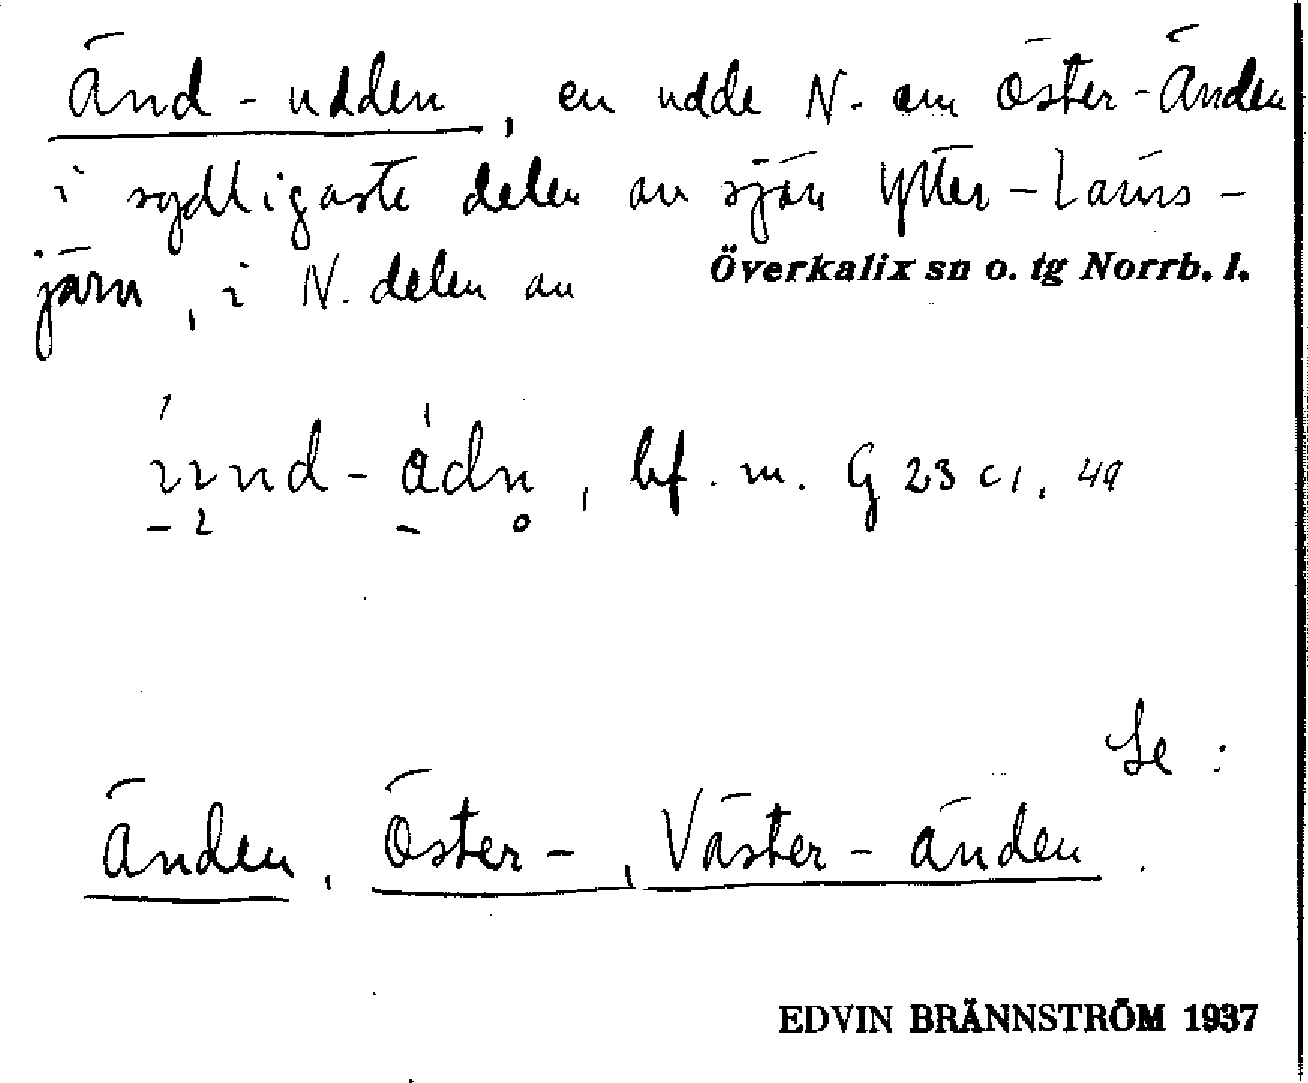 Änd-udden, en udde N. om Öster-Änden
i sydligaste delen av sjön Ytter-Lans-
järv, i N. delen av
Överkalix sn o. tg Norrb. l.
bf. m. G 23 c 1, 49
Se:
Änden, Öster-, Väster-änden.
EDVIN BRÄNNSTRÖM 1937